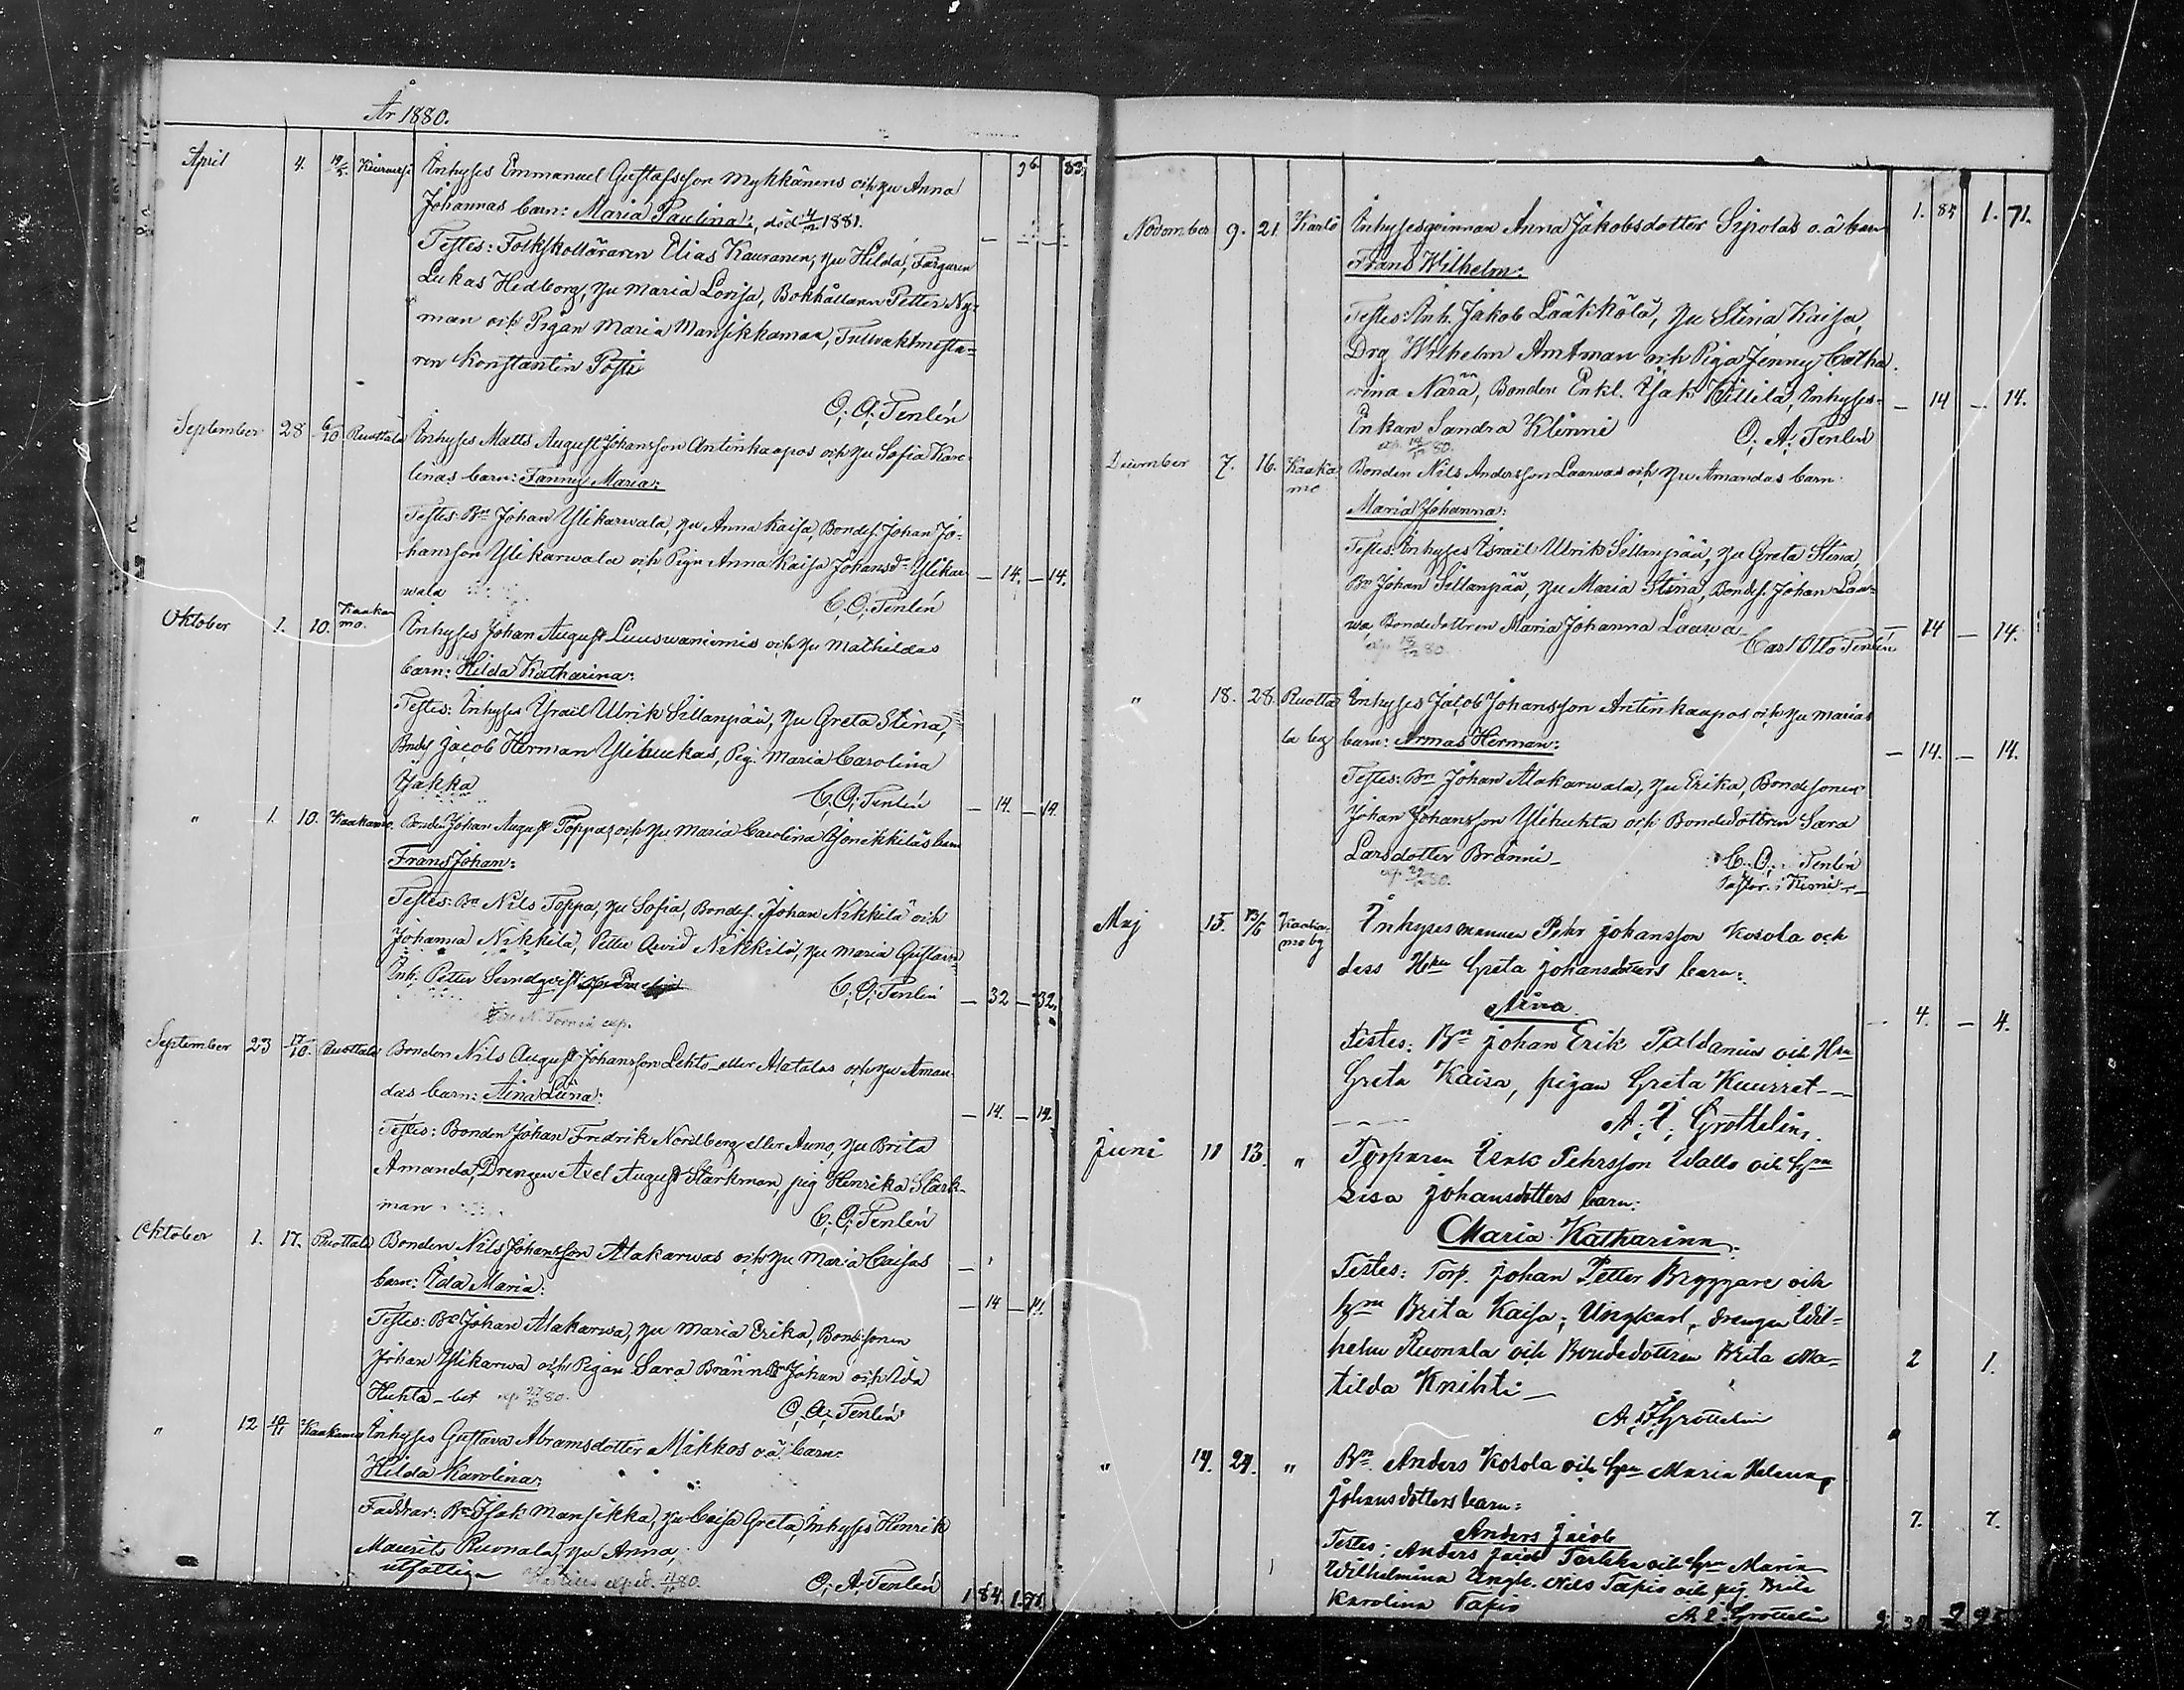 År 1880.
96 83
April 4. 19/5 Kiuruvesi Inhyses Emmanuel Gustafsson Mykkänens och Hu Anna
Johannas barn: Maria Paulina: död 4/12 1881.
Testes: Folkskolläraren Elias Kauranen, Hu Hilda, Färgaren
Lukas Hedborg, Hu Maria Lovisa, Bokhållaren Petter Ny-
man och Pigan Maria Mansikkamaa, Tullvaktmesta-
ren Konstantin Posti
O. A. Tenlén
September 28 6/10 Ruottala Inhyses Matts August Johansson Antinkaapos och Hu Sofia Karo-
linas barn: Fanny Maria:
Testes: Bn Johan Ylikarwala, Hu Anna Kaisa, Bondes. Johan Jo-
hansson Ylikarwala och Pign Anna Kaisa Johansdr Ylikar- — 14. — 14.
wala C. O. Tenlén
Oktober 1. 10. Kaaka
mo. Inhyses Johan August Luuswaniemis och Hu Mathildas
barn: Hilda Katharina:
Testes: Inhyses Israël Ulrik Sillanpää, Hu Greta Stina,
Bndes Jacob Herman Ylihuukas, Pig. Maria Carolina
Yjakka C. O. Tenlén — 14. — 14.
" 1. 10. Kaakamo. Bonden Johan August Toppas och Hu Maria Carolina Nikkiläs barn
Frans Johan:
Testes: Bn Nils Toppa, Hu Sofia, Bondes. Johan Nikkilä och
Johanna Nikkilä, Petter Arvid Nikkilä, Hu Maria Gustava
Inh. Petter Sundqvist C. O. Tenlén — 32 — 32.
N. Torneå exp.
September 23 17/10. Ruottala Bonden Nils August Johansson Lekto eller Alatalas och Hu Aman-
das barn: Aina Lüna: — 14. — 14.
Testes: Bonden Johan Fredrik Nordberg eller Auno, Hu Brita
Amanda, Drengen Axel August Starkman, pig Henrika Stark-
man C. O. Tenlén
Oktober 1. 17. Ruottala Bonden Nils Johansson Alakarwas och Hu Maria Caisas
barn: Ida Maria: — 14 — 14.
Testes: Bn Johan Alakarwa, Hu Maria Erika, Bondesonen
Johan Ylikarwa och Pigan Sara Brännä Johan och Ida
Huhta_bet exp. 27/10 80. O. A. Tenlén
" 12 Kaakamo Inhyses Gustava Abramsdotter Mikkos o.ä. barn
Hilda Karolina:
Faddrar: Bn Isak Mansikka, Hu Caisa Greta, Inhyses Henrik
Maurits Ruonala, Hu Anna,
utfattiga exped. 80. O. A. Tenlén 1 84. 1. 71.
1. 84 1. 71.
November 9. 21. Karlö Inhysesqvinnan Anna Jakobsdotter Sipolas o.ä barn
Frans Wilhelm:
Testes: Inh. Jakob Laäkkölä, Hu Stina Kaisa,
Drg Wilhelm Amtman och Piga Jenny Catha-
rina Närä, Bonden Enkl. Isak Kittilä, Inhyses- — 14 — 14.
Enkan Sandra Klinni O. A. Tenlén
exp. 80.
December 7. 16. Kaaka
mo Bonden Nils Andersson Laawas och Hu Amandas barn
Maria Johanna:
Testes: Inhyses Israël Ulrik Sillanpää, Hu Greta Stina,
Bn Johan Sillanpää, Hu Maria Stina, Bondes. Johan Laa-
wa Bondedottren Maria Johanna Laawa — 14 — 14.
80. Carl Otto Tenlén
" 18. 28. Ruotta
la by Inhyses Jacob Johansson Antinkaapos och Hu Marias
barn: Armas Herman: — 14. — 14.
Testes: Bn Johan Alakarwala, Hu Erika, Bondesonen
Johan Johansson Ylihuhta och Bondedottren Sara
Larsdotter Bränni_ C. O. Tenlén
exp. 80. Pastor i Kemi
Maj 15. 13/6 Kaaka-
mo by Inhysesmannen Pehr Johansson Kosola och
dess Hn Greta Johansdotters barn:
Aina — 4. — 4.
Testes: Bn Johan Erik Paldanius och Hn
Greta Kaisa, pigan Greta Kuurret—
A. F. Grottelin.
Juni 11 13. " Torparen Erik Pehrsson Wallo och Hn
Lisa Johansdotters barn:
Maria Katharina.
Testes: Torp. Johan Petter Bryggare och
Hn Brita Kaisa; Ungkarl, drengen Wil-
helm Ruonala och Bondedottren Brita Ma- 2 1.
tilda Knihti_
A. F. Grottelin
" 14. 24. " Bn. Anders Kosola och Hn Maria Helena
Johansdotters barn: 7. 7.
Anders Jacob
Testes: Anders Jacob Tarkka och Hn Maria
Wilhelmina Ungk. Nils Tapio och pig Brita
Karolina Tapio A. F. Grottelin